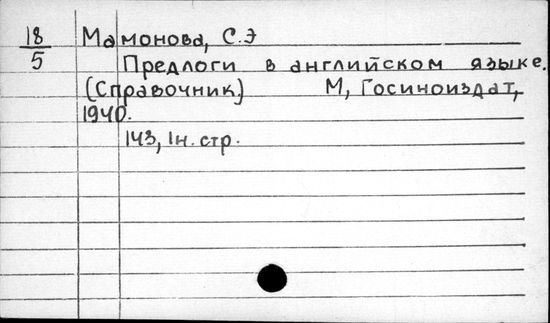 18/5 Мамонова, С.Э
Предлоги в английском языке.
(Справочник) М, Госиноиздат,
1940.
143, 1н. стр.